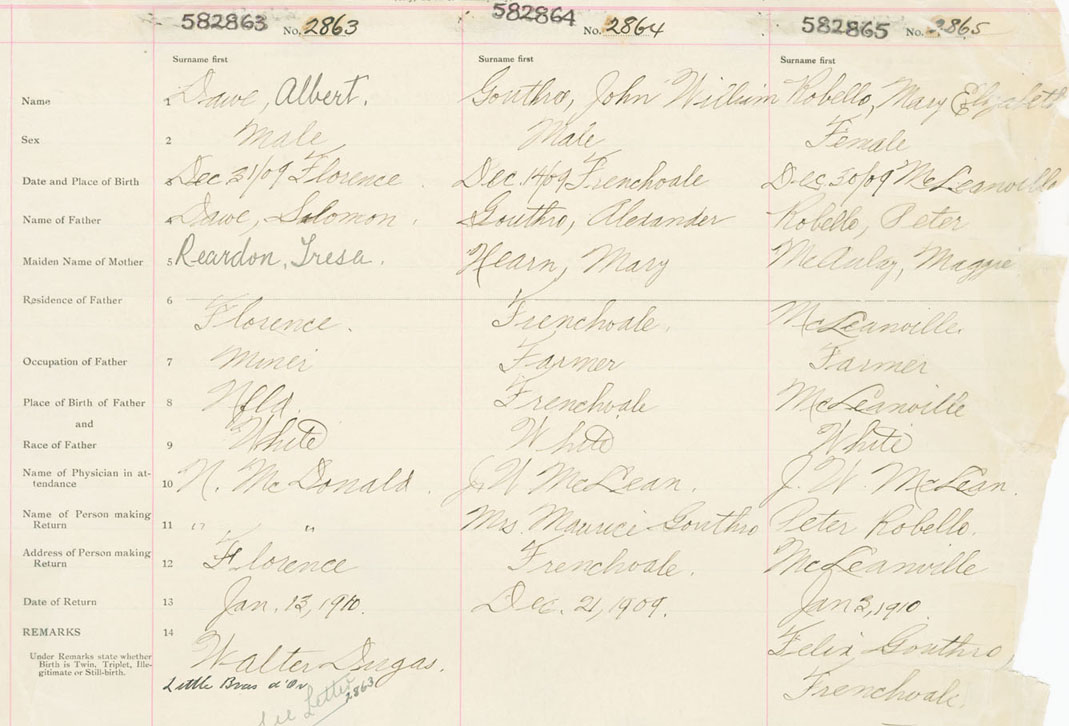 582863 No. 2863 582864 No. 2864 582865 No. 2865
Surname first Surname first Surname first
Name 1 Dawe, Albert. Gouthro, John William Robello, Mary Elizabeth
Sex 2 Male Male Female
Date and Place of Birth 3 Dec 31/09 Florence Dec. 14/09 Frenchvale Dec. 30/09 McLeanville
Name of Father 4 Dawe, Solomon. Gouthro, Alexander Robello, Peter
Maiden Name of Mother 5 Reardon, Tresa. Hearn, Mary McAulay, Maggie
Residence of Father 6 Florence. Frenchvale. McLeanville.
Occupation of Father 7 Miner Farmer Farmer
Place of Birth of Father 8 Nfld. Frenchvale McLeanville
and
Race of Father 9 White White White
Name of Physician in at-
tendance 10 N. McDonald. J. W McLean. J. W. McLean.
Name of Person making
Return 11 " " Mrs. Maurice Gouthro Peter Robello.
Address of Person making
Return 12 Florence Frenchvale. McLeanville
Date of Return 13 Jan. 13, 1910. Dec. 21, 1909. Jan 3, 1910
REMARKS 14 Felix Gouthro,
Under Remarks state whether
Birth is Twin, Triplet, Ille-
gitimate or Still-birth.
Walter Dugas.
Little Bras d'Or Frenchvale.
See Letter 2863